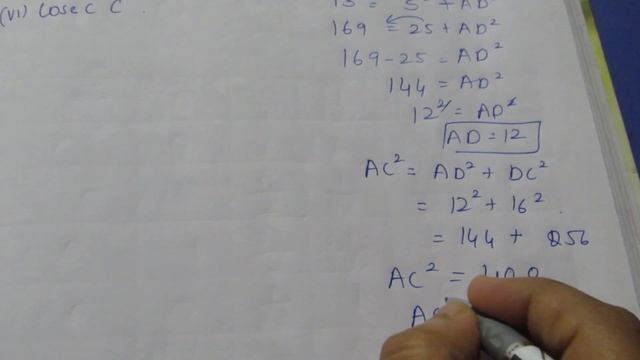 (VI) Cosec C
13² = 5² + AD²
169 = 25 + AD²
169 - 25 = AD²
144 = AD²
12² = AD²
AD = 12
AC² = AD² + DC²
= 12² + 16²
= 144 + 256
AC² = 400